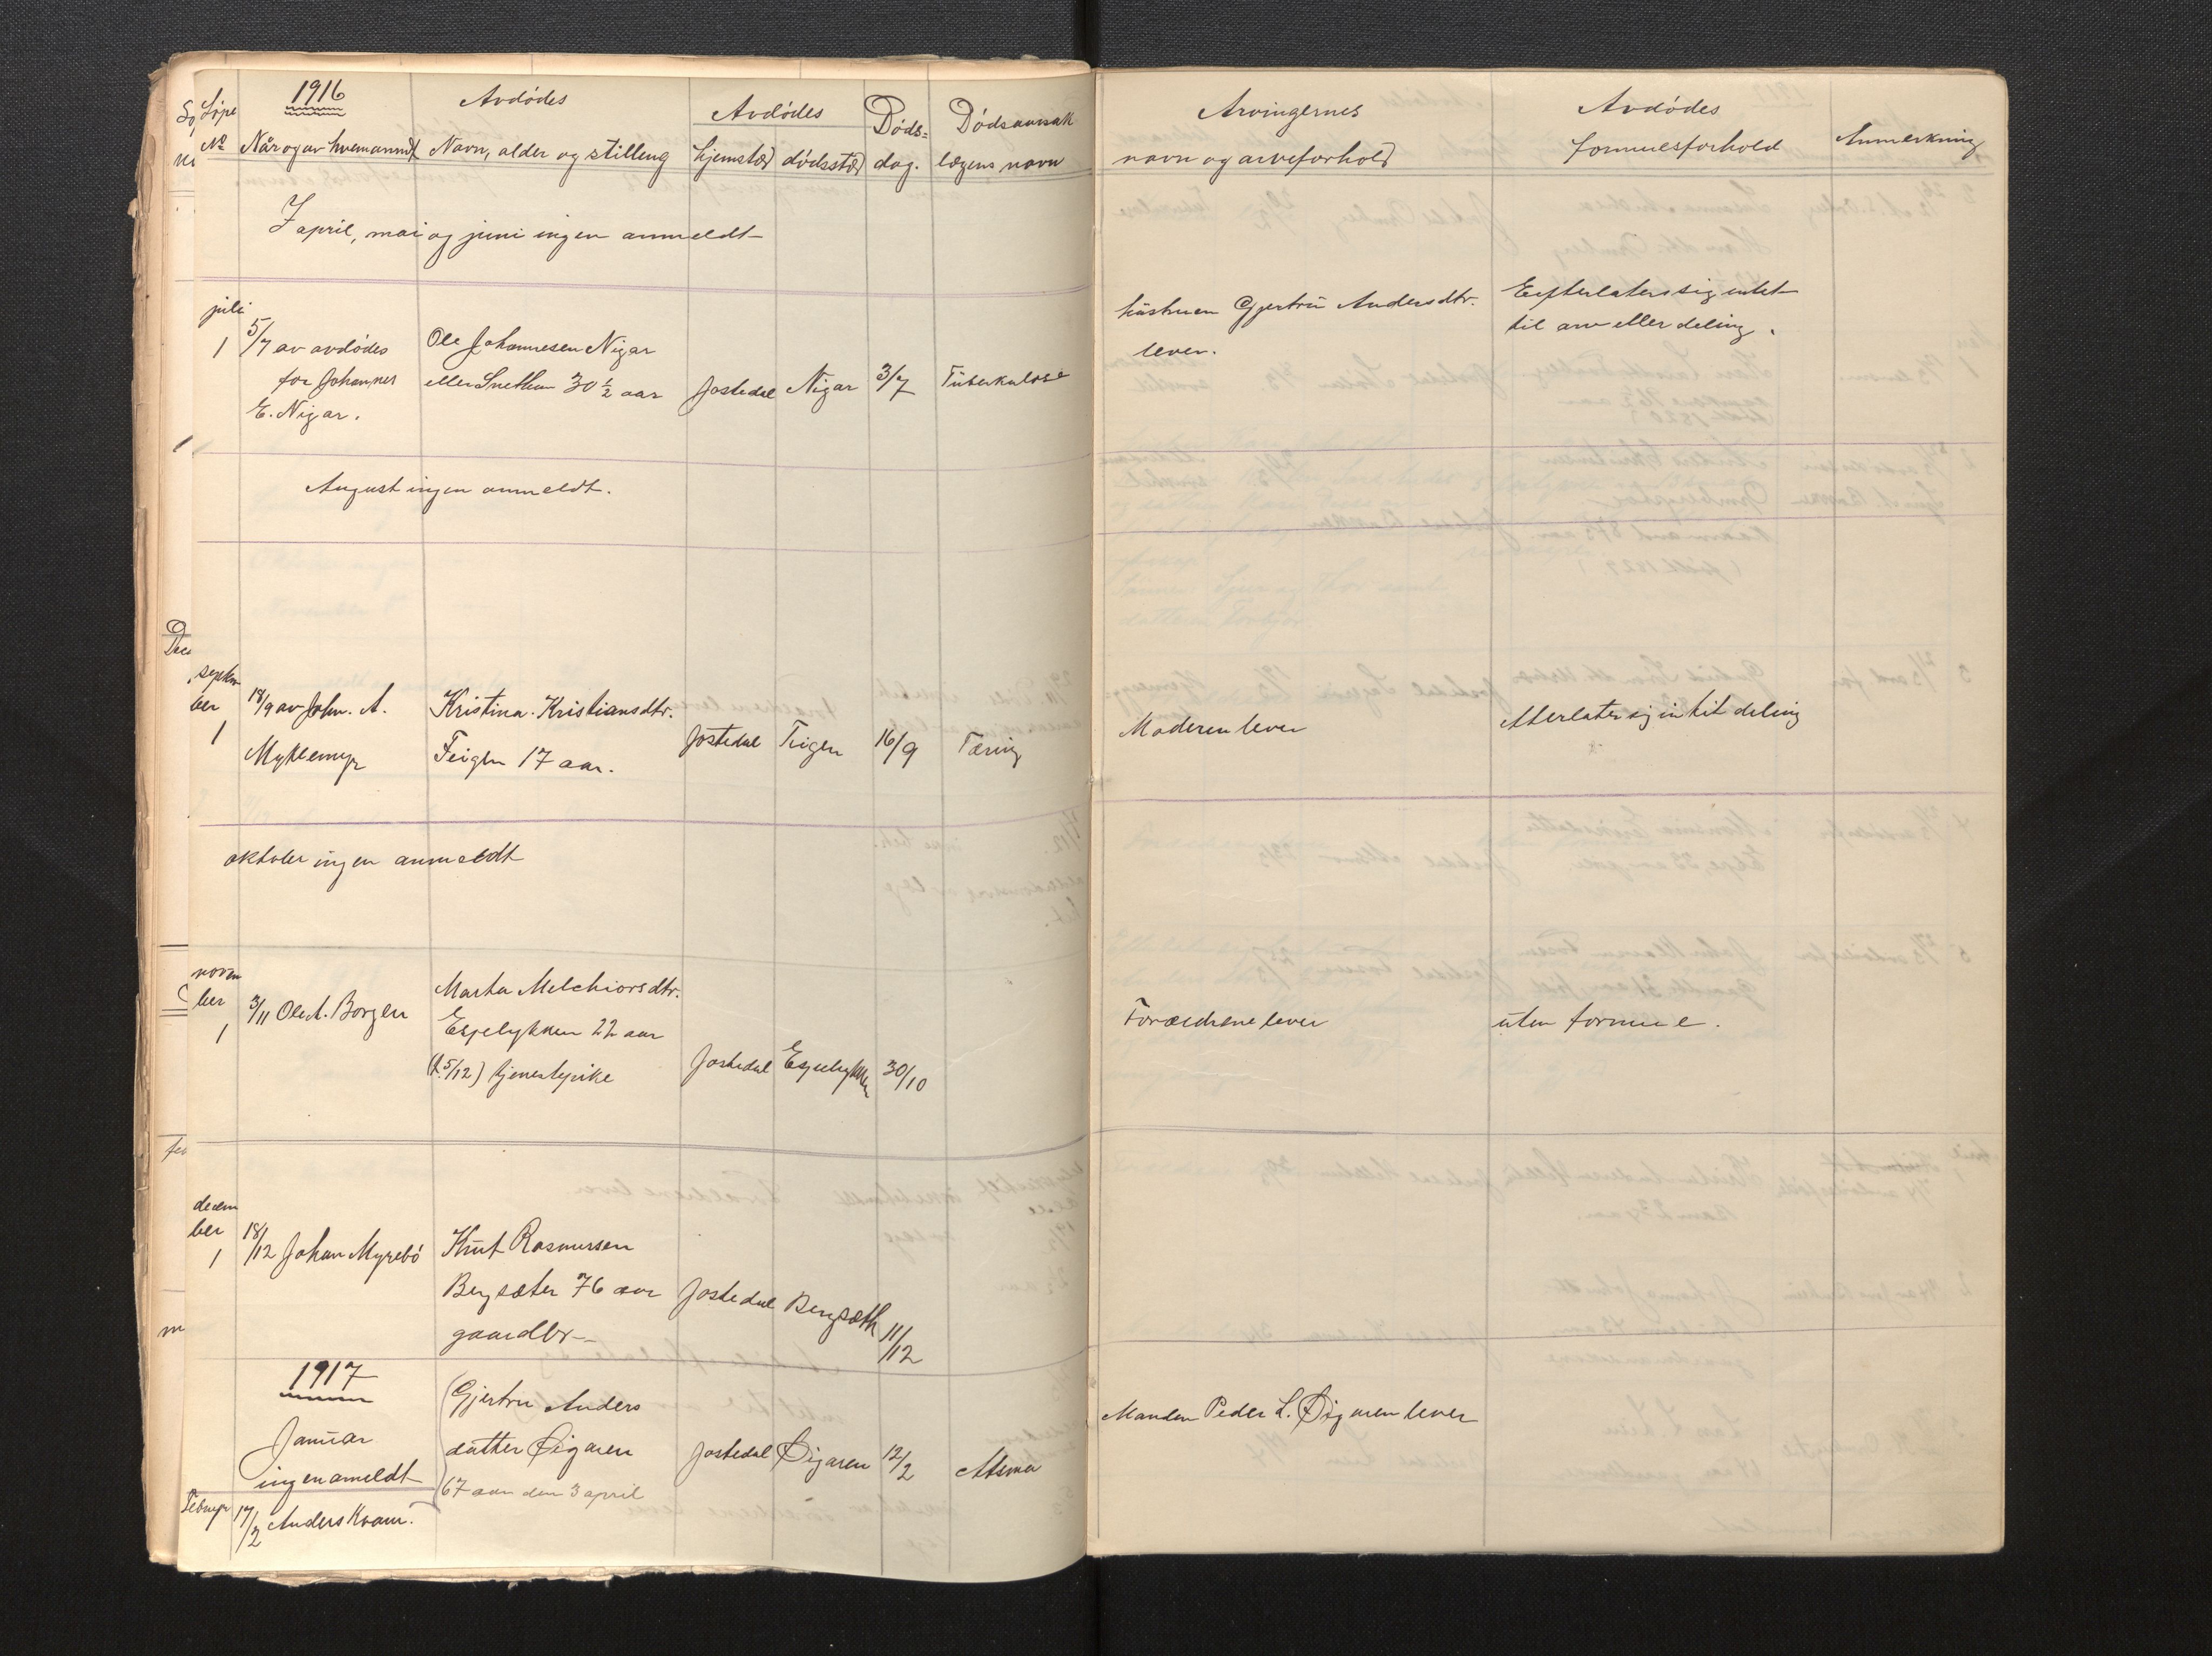 Løpe
No
1916
Når og av hvem anmdt
Avdødes
Navn, alder og stilling
Avdødes
hjemsted dødssted
Døds=
dag.
Dødsaarsak
lægens navn
Arvingernes
navn og arveforhold
Avdødes
formuesforhold
Anmerkning
I april, mai og juni ingen anmeldt
juli
1
5/7 av avdødes
far Johannes
E. Nigar.
Ole Johannesen Nigar
eller Snetun 30 1/2 aar
Jostedal Nigar 3/7 Tuberkulose
hustruen Gjertru Andersdtr.
lever.
Eefterlater sig intet
til arv eller deling.
August ingen anmeldt.
septem
ber
1
18/9 av John. A.
Myklemyr
Kristina Kristiansdtr.
Teigen 17 aar.
Jostedal Teigen 16/9 Tæring
Moderen lever
Aterlater sig in tit deling
oktober ingen anmeldt
novem
ber
1
3/11 Ole A. Borgen
Marta Melchiorsdtr.
Espelykken 22 aar
(f. 5/12) tjenestepike
Jostedal Espelykken 30/10
Forældrene lever
uten formue.
decem
ber
1
18/12 Johan Myrebö
Knut Rasmussen
Bergsæter 76 aar
gaardbr-
Jostedal Bergsæth 11/12
1917
Januar
ingen ameldt
Februar 17/2 Anders Kvam.
Gjertru Anders
datter Øigaren
67 aar den 3 april
Jostedal Øigaren 12/2 Atsma
Manden Peder L. Øigaren lever